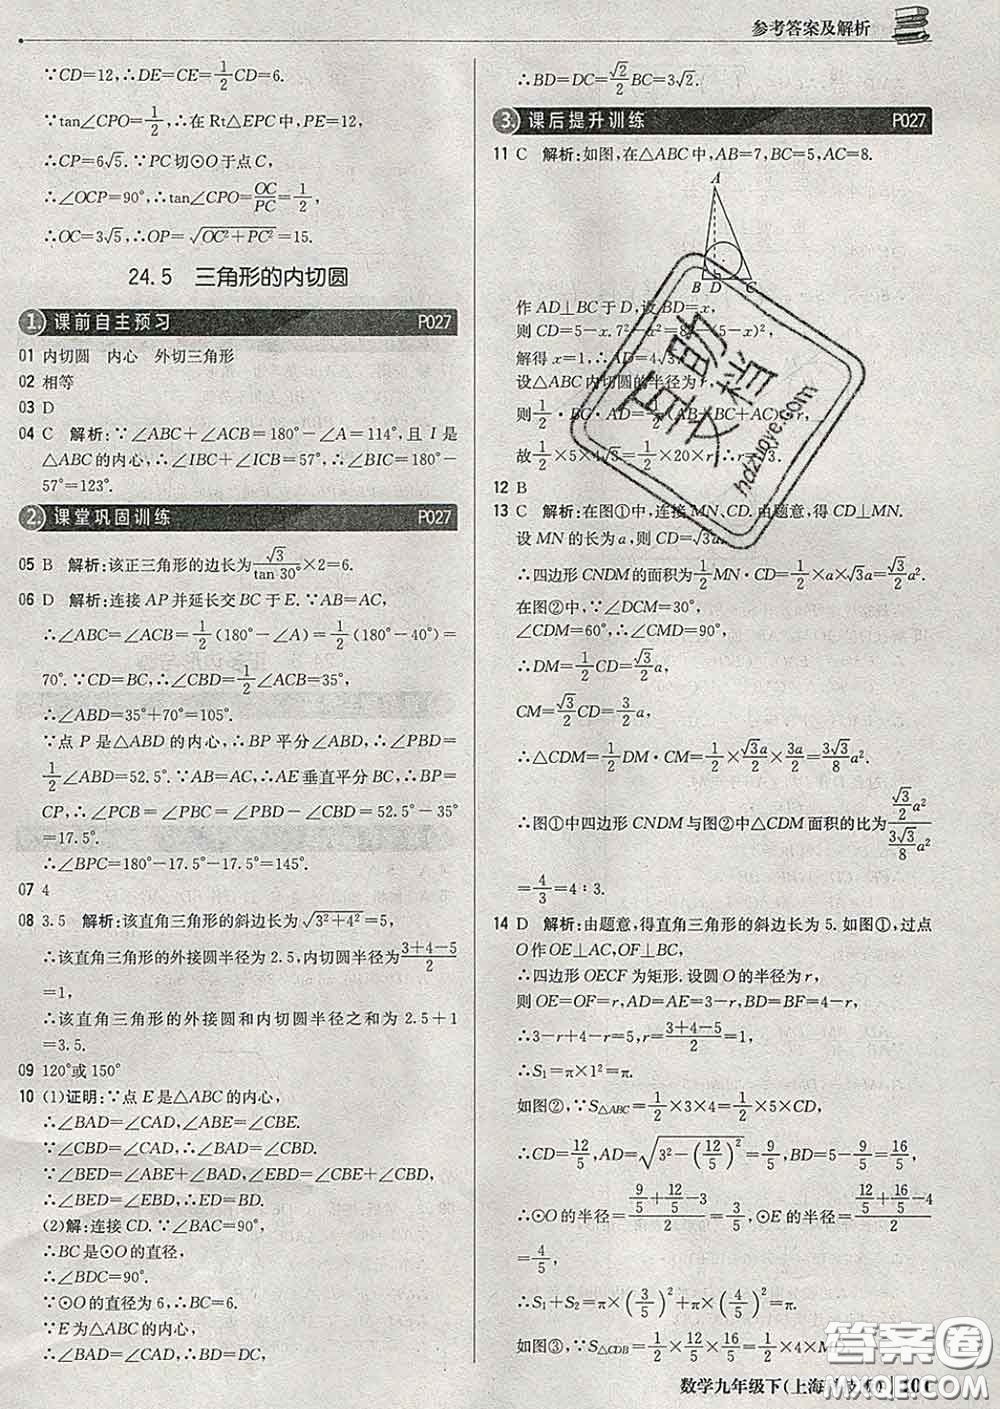 参考答案及解析
∵CD=12,∴DE=CE=1/2CD=6.
∵tan∠CPO=1/2,∴在 Rt△EPC 中,PE=12,
∴CP=6√5.∵PC 切⊙O 于点 C,
∴∠OCP=90°,∴tan∠CPO=OC/PC=1/2,
∴OC=3√5,∴OP=√(OC²+PC²)=15.
24.5 三角形的内切圆
1. 课前自主预习 P027
01 内切圆 内心 外切三角形
02 相等
03 D
04 C 解析:∵∠ABC+∠ACB=180°-∠A=114°,且 I 是
△ABC 的内心,∴∠IBC+∠ICB=57°,∴∠BIC=180°-
57°=123°.
2. 课堂巩固训练 P027
05 B 解析:该正三角形的边长为√3/tan 30°×2=6.
06 D 解析:连接 AP 并延长交 BC 于 E.∵AB=AC,
∴∠ABC=∠ACB=1/2(180°-∠A)=1/2(180°-40°)=
70°.∵BD=CD,∴∠CBD=1/2∠ACB=35°,
∴∠ABD=35°+70°=105°.
∵点 P 是△ABD 的内心,∴BP 平分∠ABD,∴∠PBD=
1/2∠ABD=52.5°.∵AB=AC,∴AE 垂直平分 BC,∴BP=
CP,∴∠PCB=∠PBC=∠PBD-∠CBD=52.5°-35°
=17.5°.
∴∠BPC=180°-17.5°-17.5°=145°.
07 4
08 3.5 解析:该直角三角形的斜边长为√(3²+4²)=5,
∴该直角三角形的外接圆半径为 2.5,内切圆半径为(3+4-5)/2
=1,
∴该直角三角形的外接圆和内切圆半径之和为 2.5+1
=3.5.
09 120°或 150°
10 (1)证明:∵点 E 是△ABC 的内心,
∴∠BAD=∠CAD,∠ABE=∠CBE.
∵∠CBD=∠CAD,∴∠BAD=∠CBD.
∵∠BED=∠ABE+∠BAD,∠EBD=∠CBE+∠CBD,
∴∠BED=∠EBD,∴ED=BD.
(2)解:连接 CD.∵∠BAC=90°,
∴BC 是⊙O 的直径,
∴∠BDC=90°.
∵⊙O 的直径为 6,∴BC=6.
∵E 为△ABC 的内心,
∴∠BAD=∠CAD,∴BD=DC,
∴BD=DC=√2/2BC=3√2.
3. 课后提升训练 P027
11 C 解析:如图,在△ABC 中,AB=7,BC=5,AC=8.
A
B D C
作 AD⊥BC 于 D,设 BD=x,
则 CD=5-x.7²-x²=8²-(5-x)²,
解得 x=1,∴AD=4√3,
设△ABC 内切圆的半径为 r,
则1/2·BC·AD=1/2(AB+BC+AC)·r,
故1/2×5×4√3=1/2×20×r,∴r=√3.
12 B
13 C 解析:在图①中,连接 MN、CD.由题意,得 CD⊥MN.
设 MN 的长为 a,则 CD=√3a.
∴四边形 CNDM 的面积为1/2MN·CD=1/2×a×√3a=√3/2a².
在图②中,∵∠DCM=30°,
∠CDM=60°,∴∠CMD=90°,
∴DM=1/2CD=√3/2a,
CM=√3/2CD=3/2a,
∴△CDM=1/2DM·CM=1/2×√3a/2×3a/2=3√3/8a²,
∴图①中四边形 CNDM 与图②中△CDM 面积的比为(√3/2a²)/(3√3/8a²)
=4/3=4∶3.
14 D 解析:由题意,得直角三角形的斜边长为 5.如图①,过点
O 作 OE⊥AC,OF⊥BC,
∴四边形 OECF 为矩形.设圆 O 的半径为 r,
则 OE=OF=r,AD=AE=3-r,BD=BF=4-r,
∴3-r+4-r=5,r=(3+4-5)/2=1,
∴S₁=π×1²=π.
如图②,∵S△ABC=1/2×3×4=1/2×5×CD,
∴CD=12/5,AD=√(3²-(12/5)²)=9/5,BD=5-9/5=16/5,
∴⊙O 的半径=(9/5+12/5-3)/2=3/5,⊙E 的半径=(12/5+16/5-4)/2
=4/5,
∴S₁+S₂=π×(3/5)²+π×(4/5)²=π.
如图③,∵S△CDB=1/2×12/5×16/5=1/2×4×M
数学九年级下(上海
互助文档
hdzuoye.com
答案圈